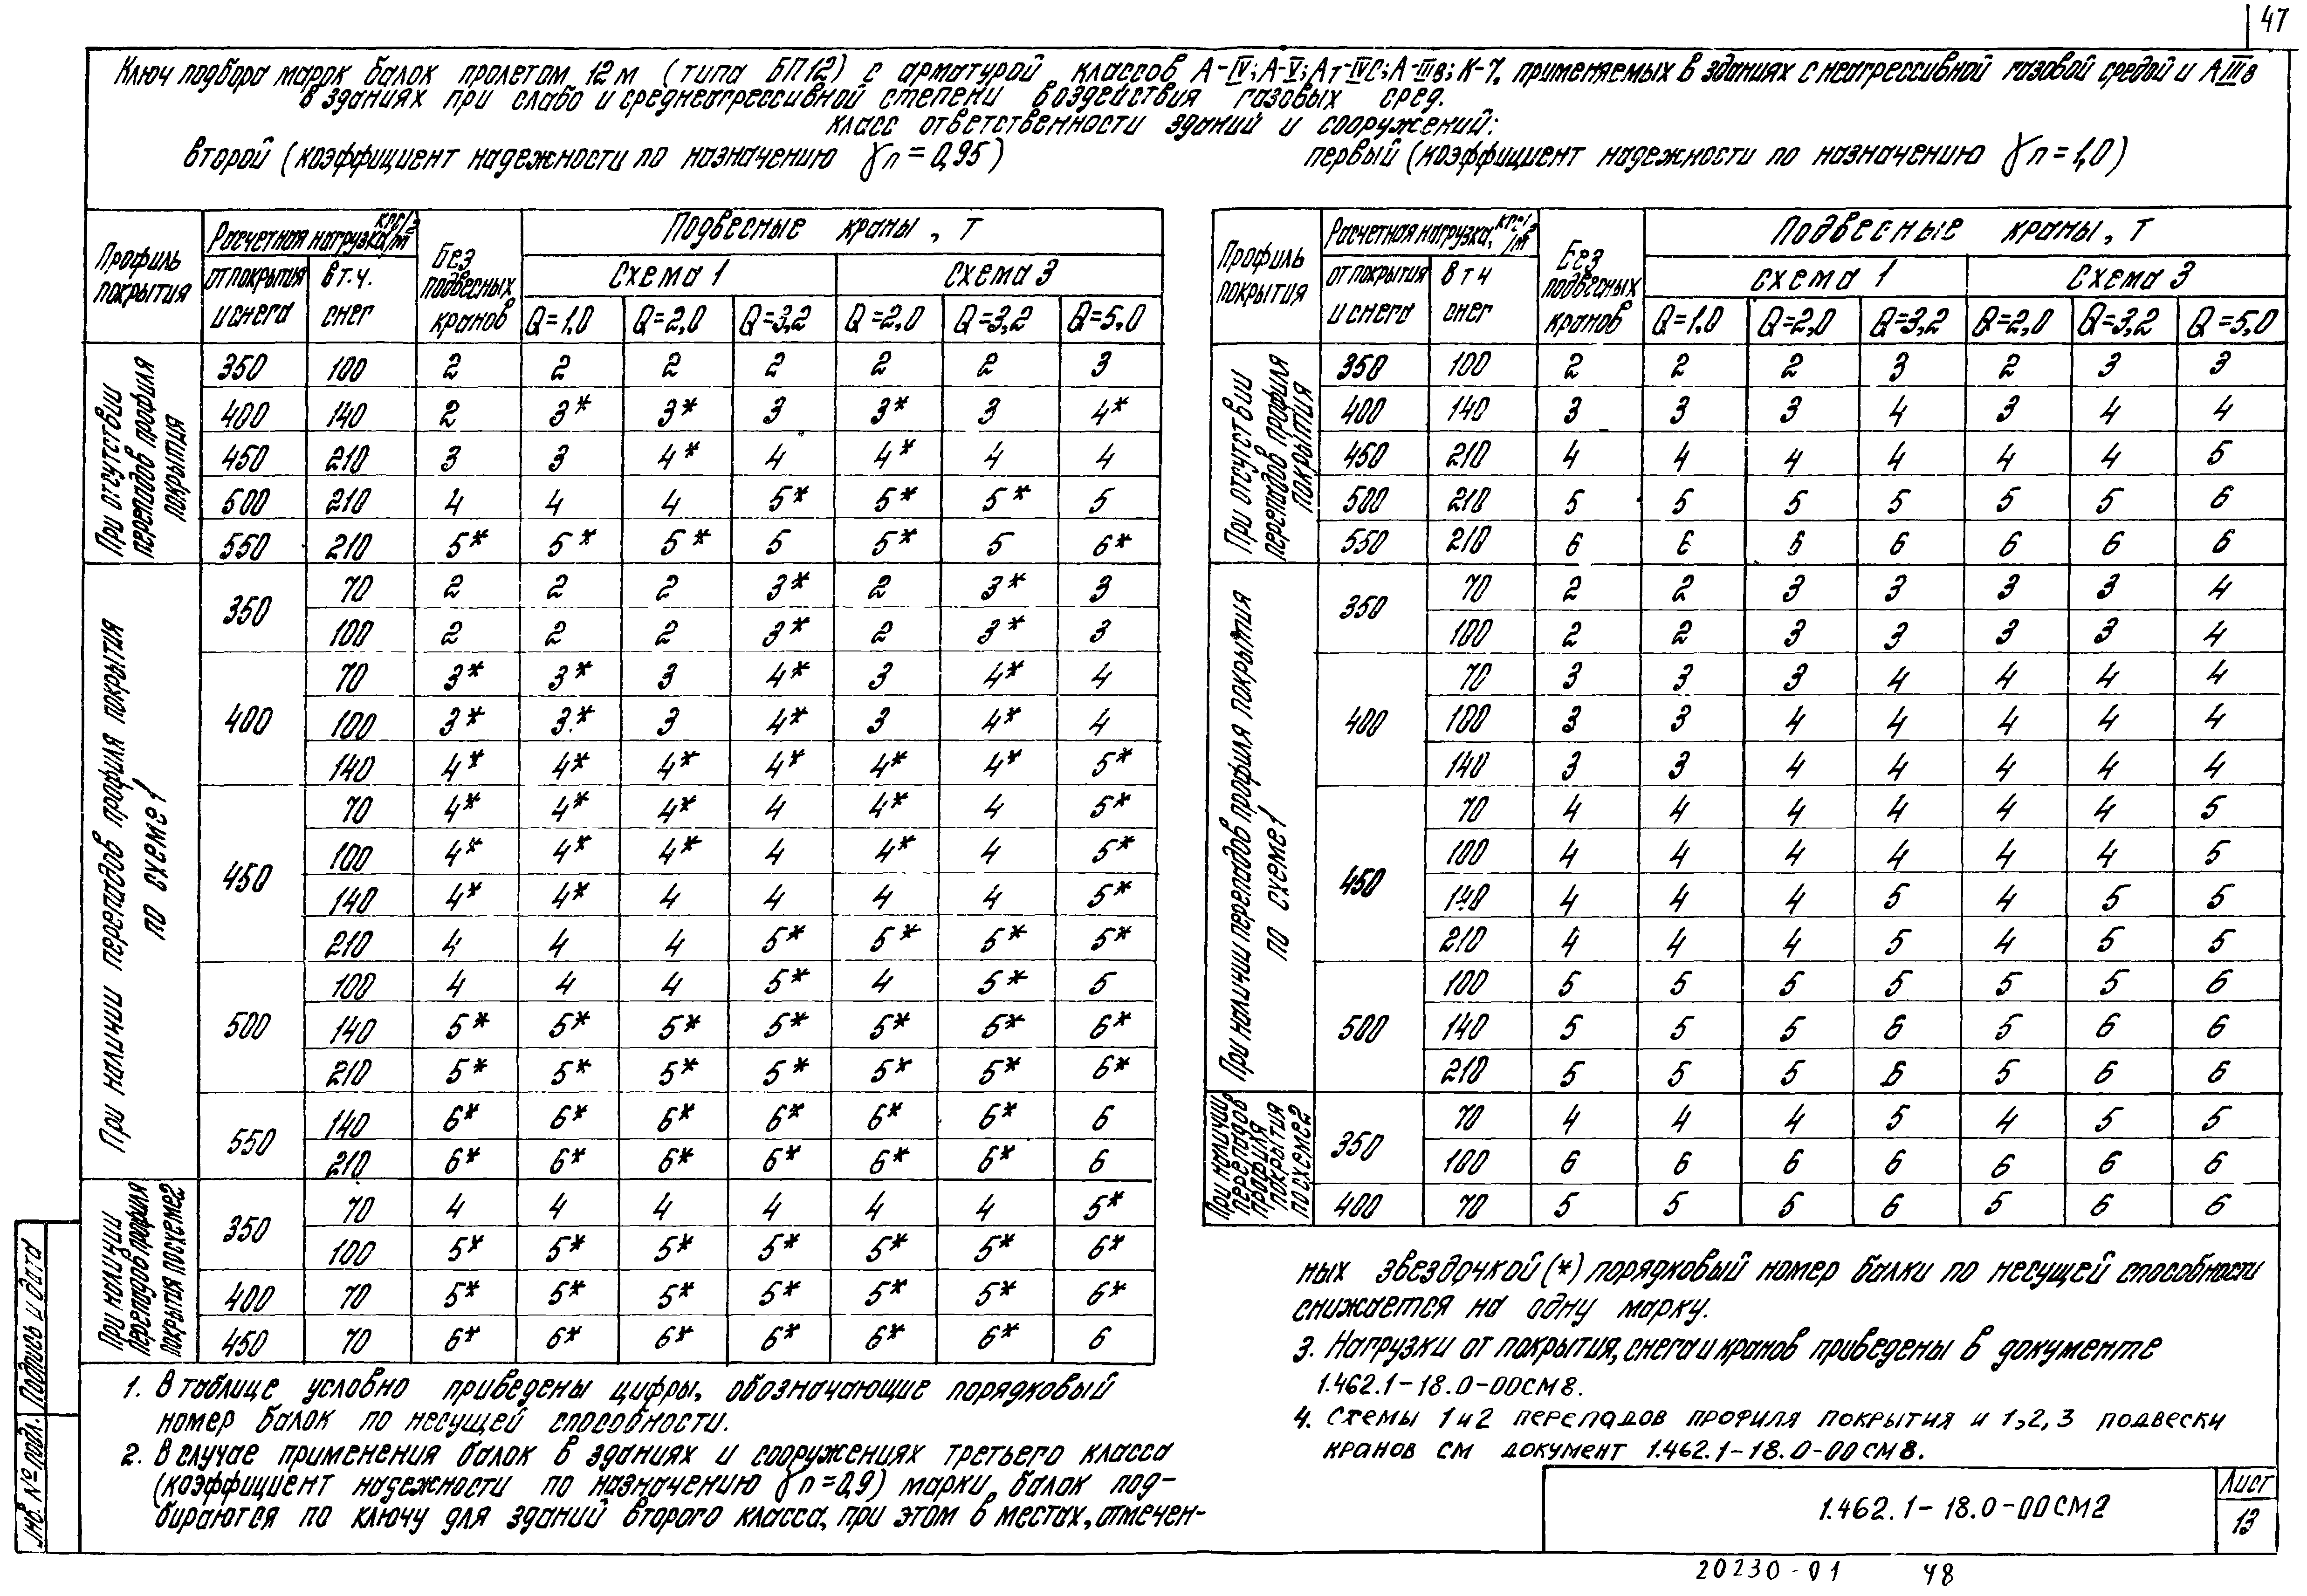 47
Ключ подбора марок балок пролетом 12м (типа БП12) с арматурой классов А-IV; А-V; Ат-IVС; А-IIIв; К-7, применяемых в зданиях с неагрессивной газовой средой и АIIIв
в зданиях при слабо и среднеагрессивной степени воздействия газовых сред.
класс ответственности зданий и сооружений:
второй (коэффициент надежности по назначению γn=0,95) первый (коэффициент надежности по назначению γn=1,0)
Профиль покрытия | Расчетная нагрузка, кгс/м² | Без подвесных кранов | Подвесные краны, т
от покрытия и снега | в т.ч. снег | Схема 1 | Схема 3
Q=1,0 | Q=2,0 | Q=3,2 | Q=2,0 | Q=3,2 | Q=5,0
При отсутствии перепадов профиля покрытия
350 100 2 2 2 2 2 2 3
400 140 2 3* 3* 3 3* 3 4*
450 210 3 3 4* 4 4* 4 4
500 210 4 4 4 5* 5* 5* 5
550 210 5* 5* 5* 5 5* 5 6*
При наличии перепадов профиля покрытия по схеме 1
350 70 2 2 2 3* 2 3* 3
100 2 2 2 3* 2 3* 3
400 70 3* 3* 3 4* 3 4* 4
100 3* 3* 3 4* 3 4* 4
140 4* 4* 4* 4* 4* 4* 5*
450 70 4* 4* 4* 4 4* 4 5*
100 4* 4* 4* 4 4* 4 5*
140 4* 4* 4 4 4 4 5*
210 4 4 4 5* 5* 5* 5*
500 100 4 4 4 5* 4 5* 5
140 5* 5* 5* 5* 5* 5* 6*
210 5* 5* 5* 5* 5* 5* 6*
550 140 6* 6* 6* 6* 6* 6* 6
210 6* 6* 6* 6* 6* 6* 6
При наличии перепадов профиля покрытия по схеме 2
350 70 4 4 4 4 4 4 5*
100 5* 5* 5* 5* 5* 5* 6*
400 70 5* 5* 5* 5* 5* 5* 6*
450 70 6* 6* 6* 6* 6* 6* 6
Профиль покрытия | Расчетная нагрузка, кгс/м² | Без подвесных кранов | Подвесные краны, т
от покрытия и снега | в т ч снег | схема 1 | Схема 3
Q=1,0 | Q=2,0 | Q=3,2 | Q=2,0 | Q=3,2 | Q=5,0
При отсутствии перепадов профиля покрытия
350 100 2 2 2 3 2 3 3
400 140 3 3 3 4 3 4 4
450 210 4 4 4 4 4 4 5
500 210 5 5 5 5 5 5 6
550 210 6 6 6 6 6 6 6
При наличии перепадов профиля покрытия по схеме 1
350 70 2 2 3 3 3 3 4
100 2 2 3 3 3 3 4
400 70 3 3 3 4 4 4 4
100 3 3 4 4 4 4 4
140 3 3 4 4 4 4 4
450 70 4 4 4 4 4 4 5
100 4 4 4 4 4 4 5
140 4 4 4 5 4 5 5
210 4 4 4 5 4 5 5
500 100 5 5 5 5 5 5 6
140 5 5 5 6 5 6 6
210 5 5 5 6 5 6 6
При наличии перепадов профиля покрытия по схеме 2
350 70 4 4 4 5 4 5 5
100 6 6 6 6 6 6 6
400 70 5 5 5 6 5 6 6
1. В таблице условно приведены цифры, обозначающие порядковый
номер балок по несущей способности.
2. В случае применения балок в зданиях и сооружениях третьего класса
(коэффициент надежности по назначению γn=0,9) марки балок под-
бираются по ключу для зданий второго класса, при этом в местах, отмечен-
ных звездочкой (*) порядковый номер балки по несущей способности
снижается на одну марку.
3. Нагрузки от покрытия, снега и кранов приведены в документе
1.462.1-18.0-00СМ8.
4. Схемы 1 и 2 перепадов профиля покрытия и 1,2,3 подвески
кранов см документ 1.462.1-18.0-00СМ8.
Инв. № подл. Подпись и дата
1.462.1-18.0-00СМ2
Лист
13
20230-01 48